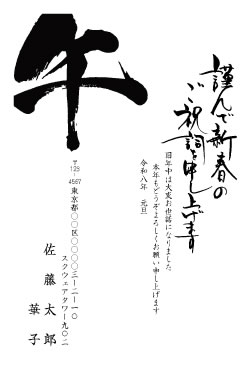 午
謹んで新春の
ご祝詞を申し上げます
旧年中は大変お世話になりました
本年もどうぞよろしくお願い申し上げます
令和八年 元旦
〒123-4567
東京都〇〇区〇〇〇〇三-二-一〇
スクウェアタワー九〇二
佐藤太郎
華子